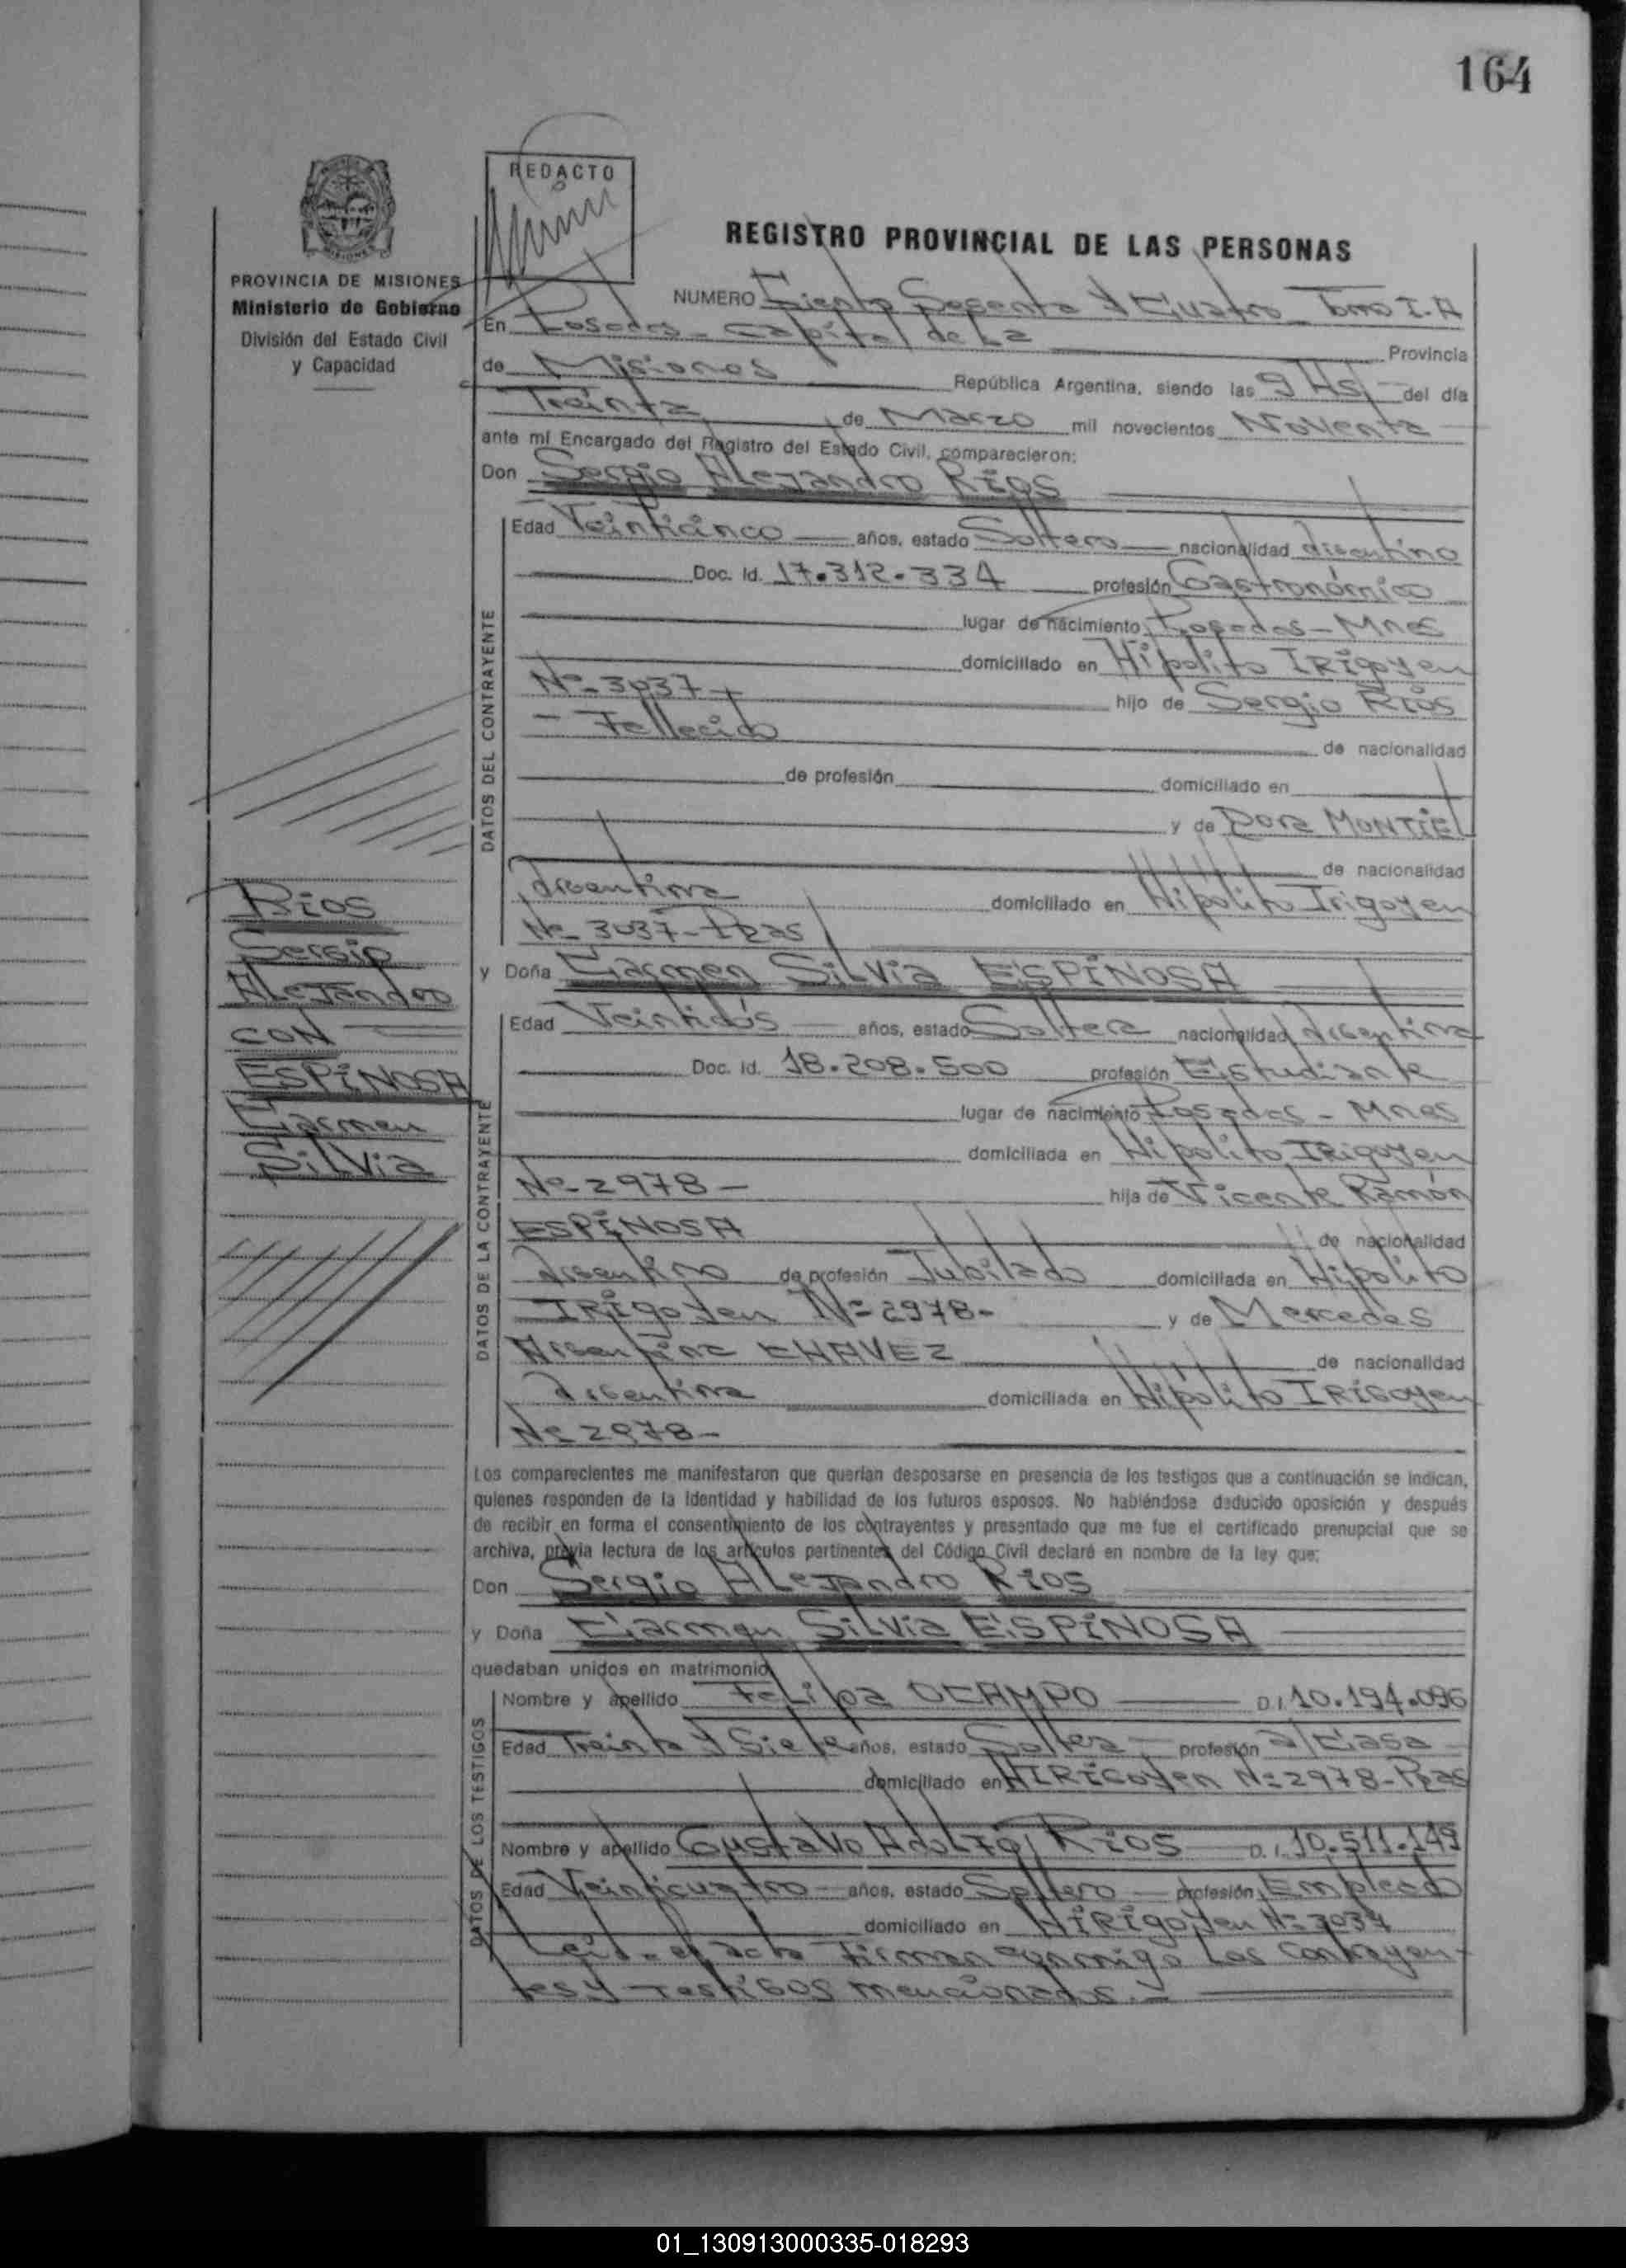 164
REDACTO
PROVINCIA DE MISIONES
Ministerio de Gobierno
División del Estado Civil
y Capacidad
REGISTRO PROVINCIAL DE LAS PERSONAS
NUMERO Ciento Sesenta y Cuatro Tomo I.A
En Posadas - Capital de La Provincia
de Misiones República Argentina, siendo las 9 Hs del día
Treinta de Marzo mil novecientos Noventa
ante mí Encargado del Registro del Estado Civil, comparecieron:
Don Sergio Alejandro RIOS
DATOS DEL CONTRAYENTE
Edad Veinticinco años, estado Soltero nacionalidad Argentino
Doc. Id. 17.312.334 profesión Gastronómico
lugar de nacimiento Posadas - Mnes
domiciliado en Hipolito IRIGOYEN
Nº 3037 hijo de Sergio RIOS
- Fallecido de nacionalidad
de profesión domiciliado en
y de Dora MONTIEL
de nacionalidad
Argentina domiciliado en Hipólito Irigoyen
Nº 3037 - Pdas
y Doña Carmen Silvia ESPINOSA
DATOS DE LA CONTRAYENTE
Edad Veintidós años, estado Soltera nacionalidad Argentina
Doc. Id. 18.208.500 profesión Estudiante
lugar de nacimiento Posadas - Mnes
domiciliada en Hipolito IRIGOYEN
Nº 2978 - hija de Vicente Ramón
ESPINOSA de nacionalidad
Argentino de profesión Jubilado domiciliada en Hipolito
IRIGOYEN Nº 2978 - y de Mercedes
Argentina CHAVEZ de nacionalidad
Argentina domiciliada en Hipólito IRIGOYEN
Nº 2978 -
Rios
Sergio
Alejandro
CON
ESPINOSA
Carmen
Silvia
Los comparecientes me manifestaron que querían desposarse en presencia de los testigos que a continuación se indican,
quienes responden de la Identidad y habilidad de los futuros esposos. No habiéndose deducido oposición y después
de recibir en forma el consentimiento de los contrayentes y presentado que me fue el certificado prenupcial que se
archiva, previa lectura de los artículos pertinentes del Código Civil declaré en nombre de la ley que:
Don Sergio Alejandro RIOS
y Doña Carmen Silvia ESPINOSA
quedaban unidos en matrimonio
DATOS DE LOS TESTIGOS
Nombre y apellido Felipa OCAMPO D.I. 10.194.096
Edad Treinta y Siete años, estado Soltera profesión a/Casa
domiciliado en H IRIGOYEN Nº 2978 - Pdas
Nombre y apellido Gustavo Adolfo RIOS D.I. 10.511.149
Edad Veinticuatro años, estado Soltero profesión Empleado
domiciliado en H IRIGOYEN Nº 3037
Leída el acta firman conmigo Los Contrayen-
tes y Testigos mencionados. -
01_130913000335-018293